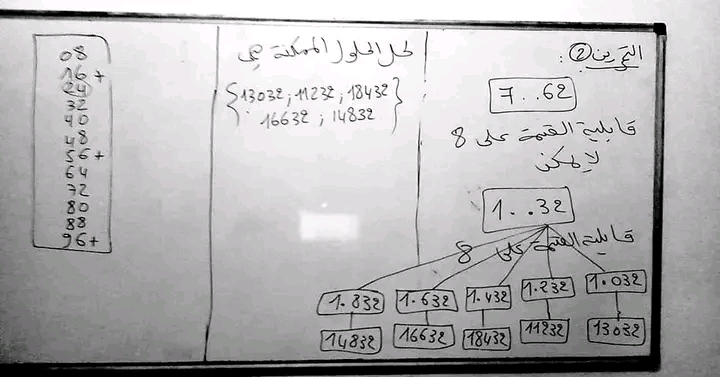 التمرين ② :
7..62
قابلية القسمة على 8
لا يمكن
1..32
قابلية القسمة على 8
1.832 1.632 1.432 1.232 1.032
14832 16632 18432 11232 13032
كل الحلول الممكنة هي
{13032 ; 11232 ; 18432
16632 ; 14832}
08
16+
24
32
40
48
56+
64
72
80
88
96+